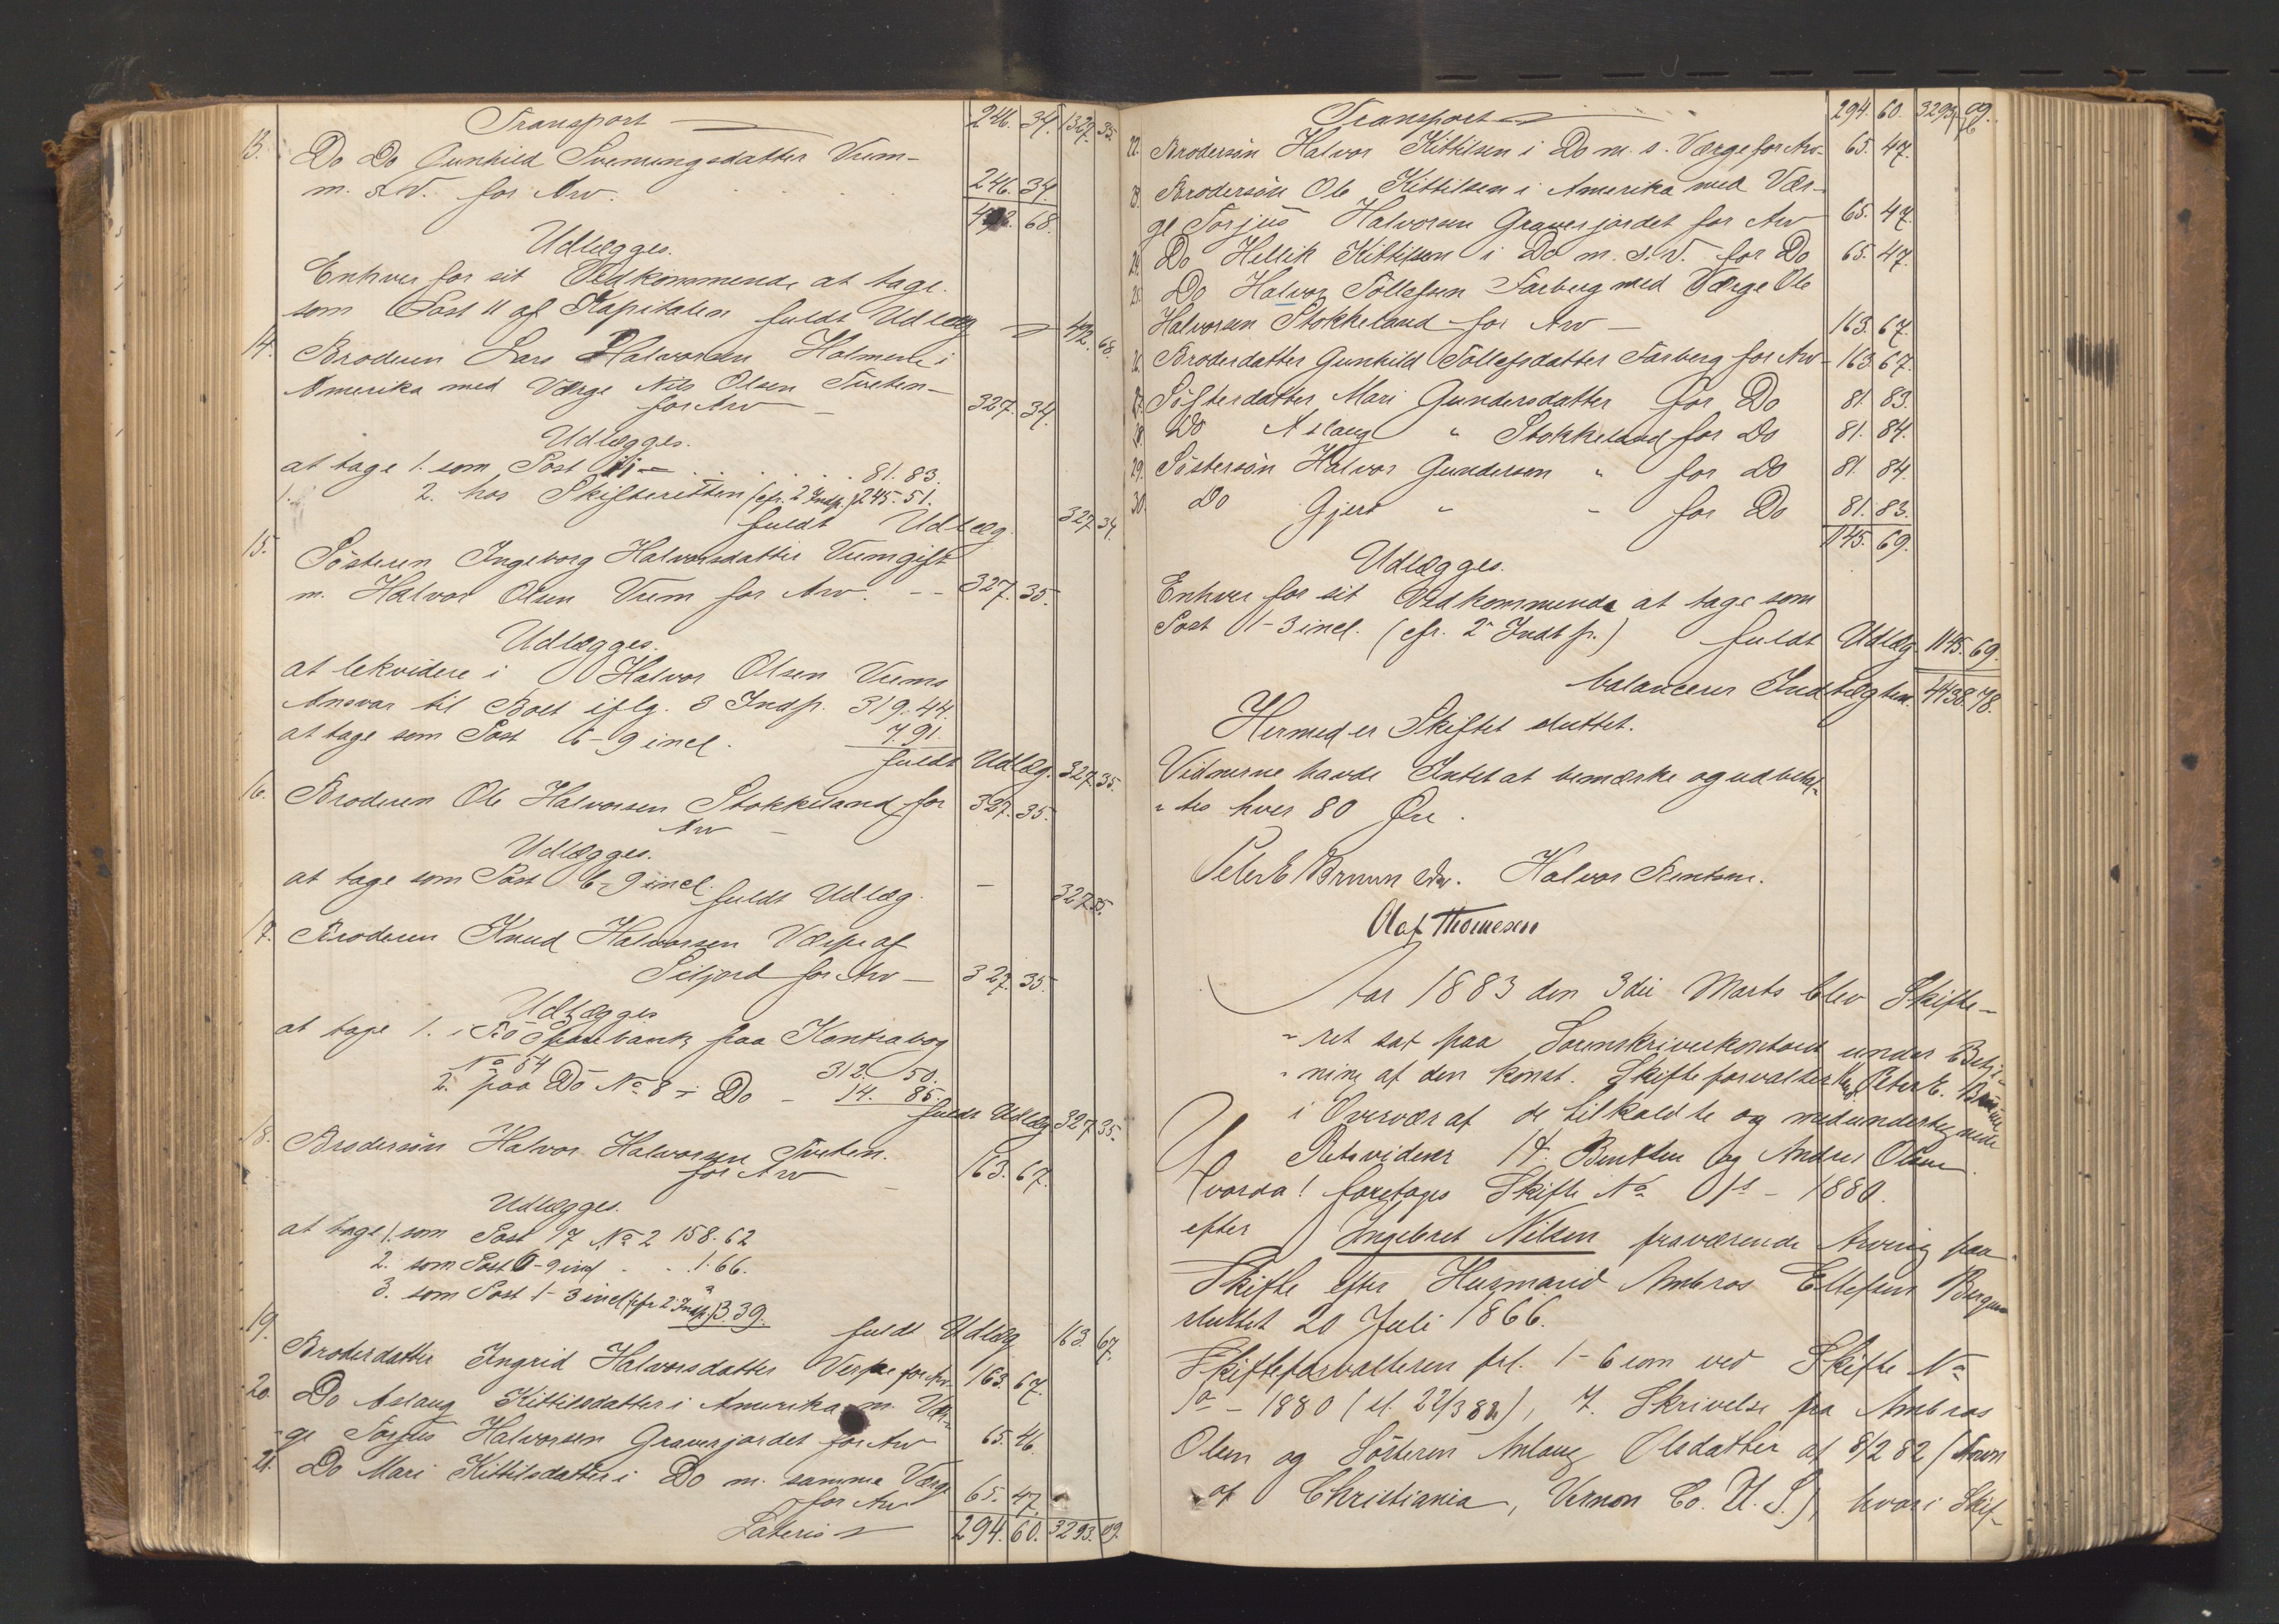 Transport 246. 34. 1327. 35.
13. Do Do Gunhild Svenungsdatter Vrum-
m. s. V. for Arv. 246. 34.
492. 68.
Udlægges.
Enhver for sit Vedkommende at tage
som Post 11 af Kapitalen fuldt Udlæg 492. 68.
14. Broderen Lars Halvorsen Holmen i
Amerika med Værge Nils Olsen Tveten-
for Arv 327. 34.
Udlægges.
at tage 1. som Post 11 - 81. 83.
2. hos Skifteretten (cfr. 2 Indp.) 245. 51.
fuldt Udlæg. 327. 34.
15. Søsteren Ingeborg Halvorsdatter Vrum gift
m. Halvor Olsen Vrum for Arv. -- 327. 35.
Udlægges.
at lekvidere i Halvor Olsen Vrums
Ansvar til Boet iflg. 3 Indp. 319. 44.
at tage som Post 6-9 incl. 7. 91.
fuldt Udlæg. 327. 35.
16. Broderen Ole Halvorsen Stokkeland for 327. 35.
Arv -
Udlægges.
at tage som Post 6-9 incl. fuldt Udlæg. - 327. 35.
17. Broderen Knud Halvorsen af
Siljord for Arv - 327. 35.
Udlægges
at tage 1. i Bø Sparebank paa Kontrabog
No 54 312. 50.
2. paa Do No 8 i Do - 14. 85.
fuldt Udlæg 327. 35.
18. Brodersøn Halvor Halvorsen Tveten.
for Arv - 163. 67.
Udlægges.
at tage 1. som Post 17 No 2 158. 62
2. som Post 6-9 incl . . 1. 66.
3. som Post 1-3 incl (cfr 2 Indp.) 3. 39.
fuldt Udlæg 163. 67.
19. Broderdatter Ingrid Halvorsdatter for Arv 163. 67.
20. Do Aslaug Kittilsdatter i Amerika m. Vær-
ge Torjus Halvorsen Graverjordet for Arv 65. 46.
21. Do Mari Kittilsdatter i Do m. samme Værge
for Arv 65. 47.
Lateris 294. 60. 3293. 09.
Transport 294. 60. 3293. 09.
22. Brodersøn Halvor Kittilsen i Do m. s. Værge for Arv- 65. 47.
23. Brodersøn Ole Kittilsen i Amerika med Vær-
ge Torjus Halvorsen Graverjordet for Arv 65. 47.
24. Do Hellik Kittilsen i Do m. s. V. for Do 65. 47.
25. Do Halvor Tollefsen Farberg med Værge Ole
Halvorsen Stokkeland for Arv - 163. 67.
26. Broderdatter Gunhild Tollefsdatter Farberg for Arv- 163. 67.
27. Søsterdatter Mari Gundersdatter for Do 81. 83.
28. Do Aslaug " Stokkeland for Do 81. 84.
29. Søstersøn Halvor Gundersen " for Do 81. 84.
30. Do Gjert " " for Do 81. 83.
1145. 69.
Udlægges.
Enhver for sit Vedkommende at tage som
Post 1-3 incl. (cfr. 2 Indt p.) fuldt Udlæg 1145. 69.
balancerer Indtægten. 4438. 78.
Hermed er Skiftet sluttet.
Vidnerne havde Intet at bemærke og udbetal-
"tes hver 80 Øre.
Peter E Bruun Halvor
Olaf Thomesen
Aar 1883 den 3die Marts blev Skifte-
"ret sat paa Sorenskriverkontoret under Betje-
"ning af den konst. Skifteforvalter Peter E. Bruun
i Overvær af de tilkaldte og medundertegnede
Retsvidner H. Bentsen og Andres Olsen.
Hvorda! foretoges Skifte No 1880.
efter Ingebret Nilsen fraværende Arving paa
Skifte efter Husmand Ambros Ellefsen
sluttet 20 Juli 1866.
Skifteforvalteren frl. 1-6 som ved Skifte No
- 1880 (sl. 22/3 82), 7. Skrivelse fra Ambros
Olsen og Søsteren Aslaug Olsdatter af 8/2 82 (Town
of Christiania, Vernon Co. U. S.), hvori Skif-